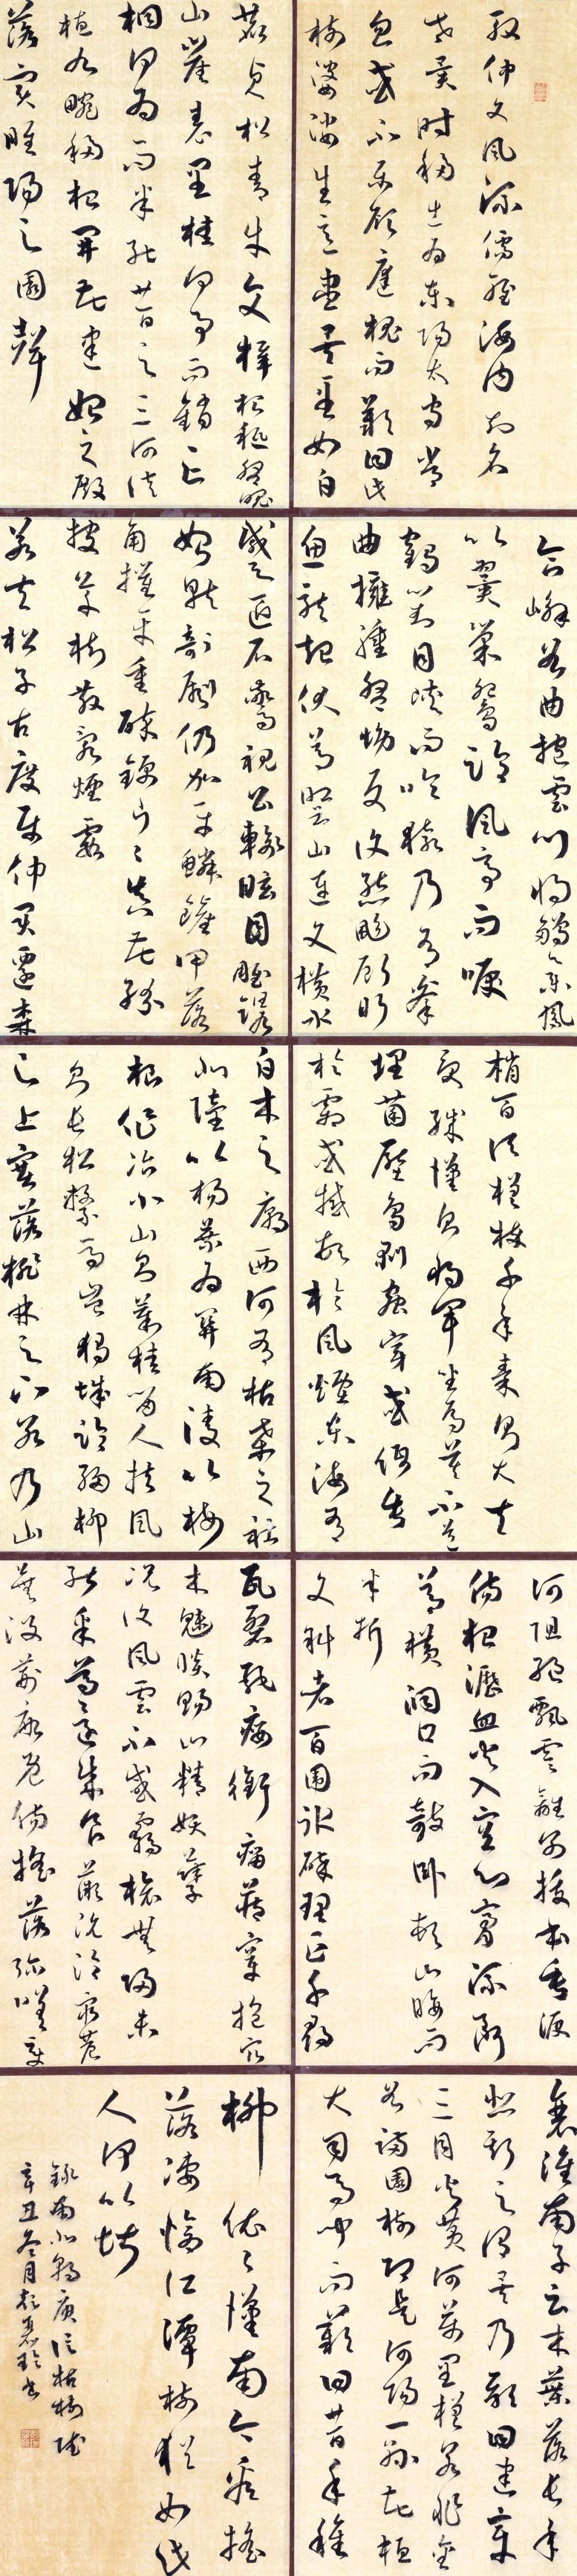 殷仲文風流儒雅海内知名
世異時移出為東陽太守常
忽忽不樂顧庭槐而歎曰此
樹婆娑生意盡矣至如白
鹿貞松青牛文梓根柢盤魄
山崖表里桂何事而銷亡
桐何為而半死昔之三河徙
植九畹移根開花建始之殿
落實睢陽之園聲
含嶰谷曲抱雲門將雛集鳳
比翼巢鴛臨風亭而唳
鶴對月峽而吟猿乃有拳
曲擁腫盤坳反覆熊彪顧盼
魚龍起伏節豎山連文橫水
蹙匠石驚視公輸眩目雕鐫
始就剞劂仍加平鱗鏟甲落
角摧牙重重碎錦片片真花紛
披草樹散亂煙霞
若夫松子古度平仲君遷森
梢百頃槎枿千年秦則大夫
受職漢則將軍坐焉莫不苔
埋菌壓鳥剥蟲穿或低垂
於霜露或撼頓於風煙東海有
白木之廟西河有枯桑之社
北陸以楊葉為關南陵以梅
根作冶小山則叢桂留人扶風
則長松繫馬豈獨城臨細柳
之上塞落桃林之下若乃山
河阻絶飄零離别拔本垂淚
傷根瀝血火入空心膏流斷
節橫洞口而敧卧頓山腰而
半折
文斜者百圍冰碎理正千尋
瓦裂載癭銜瘤藏穿抱穴
木魅睒睗山精妖孽
況復風雲不感羈旅無歸未
能采葛還成食薇沉淪窮巷
蕪没荆扉既傷搖落彌嗟變
衰淮南子云木葉落長年
悲斯之謂矣乃歌曰建章
三月火黄河萬里槎若非金
谷滿園樹即是河陽一縣花桓
大司馬聞而歎曰昔年種
柳依依漢南今看搖
落凄愴江潭樹猶如此
人何以堪
錄南北朝庾信枯樹賦
辛丑冬月